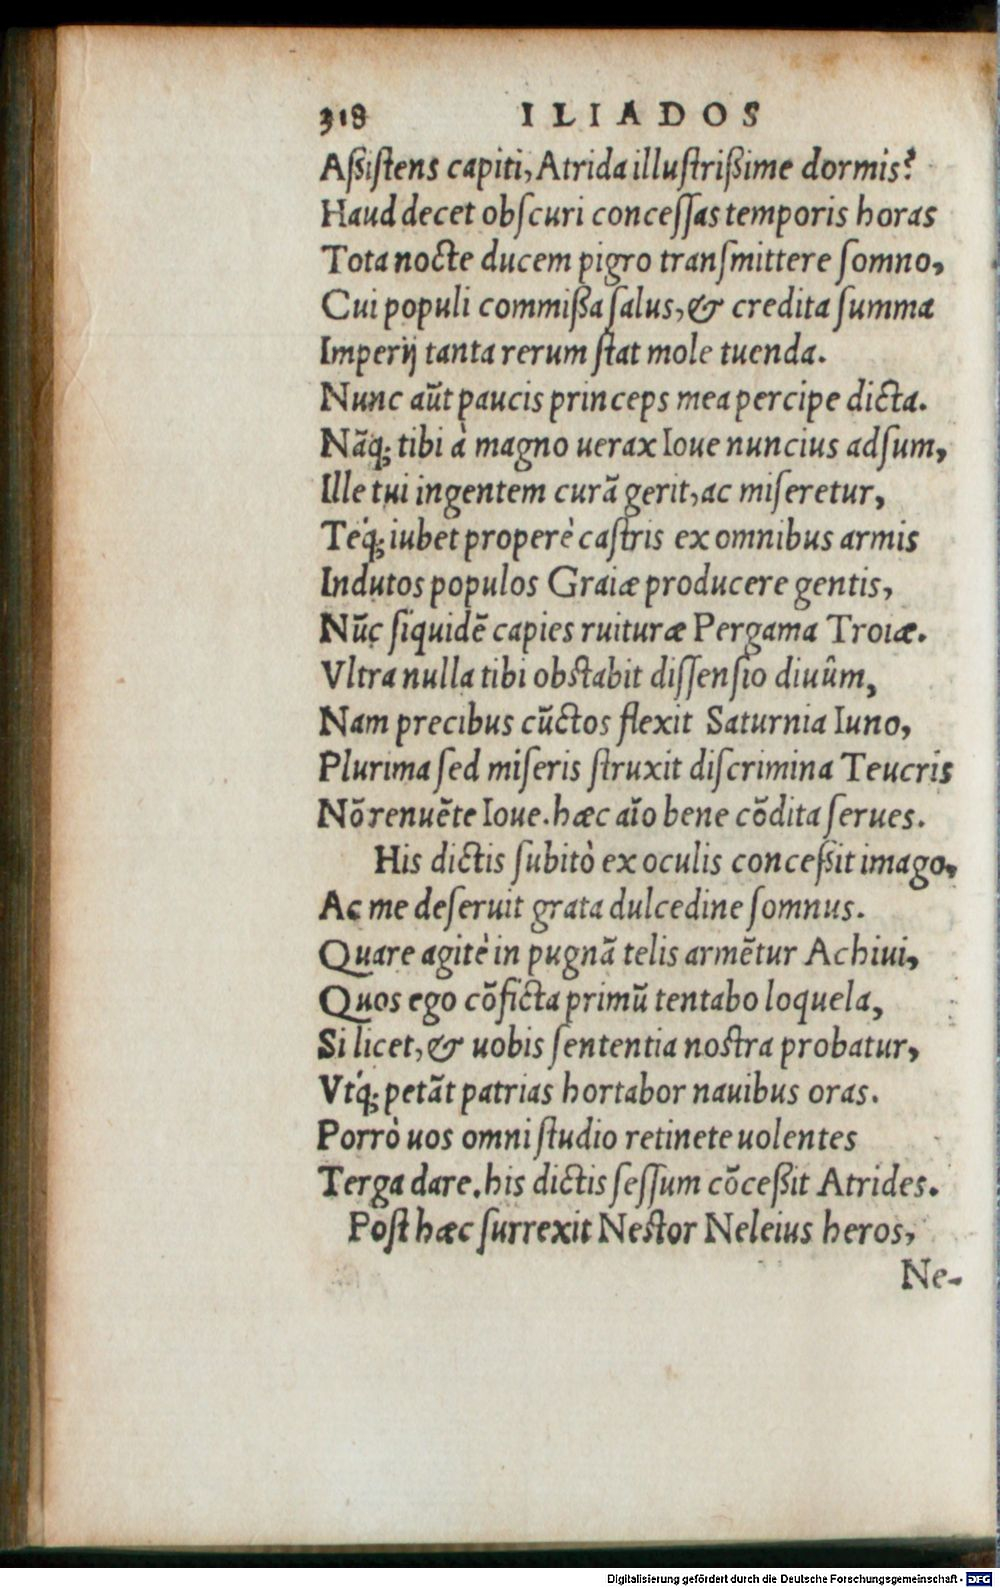 318 ILIADOS
Aſsiſtens capiti, Atrida illuſtriſsime dormis?
Haud decet obſcuri conceſſas temporis horas
Tota nocte ducem pigro tranſmittere ſomno,
Cui populi commiſſa ſalus, & credita ſumma
Imperij tanta rerum ſtat mole tuenda.
Nunc aūt paucis princeps mea percipe dicta.
Nāq; tibi à magno uerax Ioue nuncius adſum,
Ille tui ingentem curā gerit, ac miſeretur,
Téq; iubet properè caſtris ex omnibus armis
Indutos populos Graiæ producere gentis,
Nūc ſiquidē capies ruituræ Pergama Troiæ.
Vltra nulla tibi obſtabit diſſenſio diuûm,
Nam precibus cūctos flexit Saturnia Iuno,
Plurima ſed miſeris ſtruxit diſcrimina Teucris
Nō renuēte Ioue. hæc aīo bene cōdita ſerues.
His dictis ſubitò ex oculis conceſsit imago,
Ac me deſeruit grata dulcedine ſomnus.
Quare agitè in pugnā telis armētur Achiui,
Quos ego cōficta primū tentabo loquela,
Si licet, & uobis ſententia noſtra probatur,
Vtq́; petāt patrias hortabor nauibus oras.
Porrò uos omni ſtudio retinete uolentes
Terga dare. his dictis ſeſſum cōceſsit Atrides.
Poſt hæc ſurrexit Neſtor Neleius heros,
Ne-
Digitalisierung gefördert durch die Deutsche Forschungsgemeinschaft - DFG